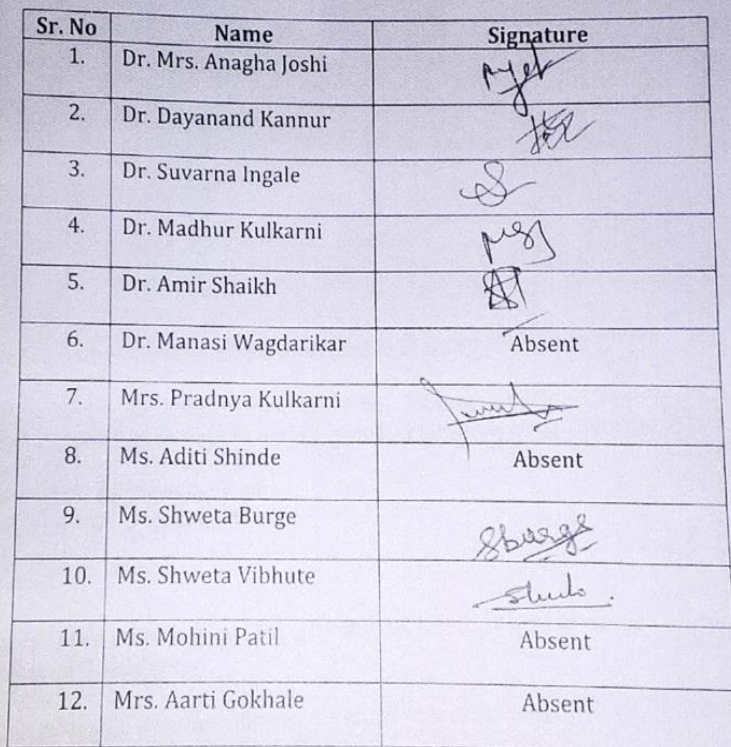 Sr. No Name Signature
1. Dr. Mrs. Anagha Joshi
2. Dr. Dayanand Kannur
3. Dr. Suvarna Ingale
4. Dr. Madhur Kulkarni
5. Dr. Amir Shaikh
6. Dr. Manasi Wagdarikar Absent
7. Mrs. Pradnya Kulkarni
8. Ms. Aditi Shinde Absent
9. Ms. Shweta Burge Sburge
10. Ms. Shweta Vibhute
11. Ms. Mohini Patil Absent
12. Mrs. Aarti Gokhale Absent